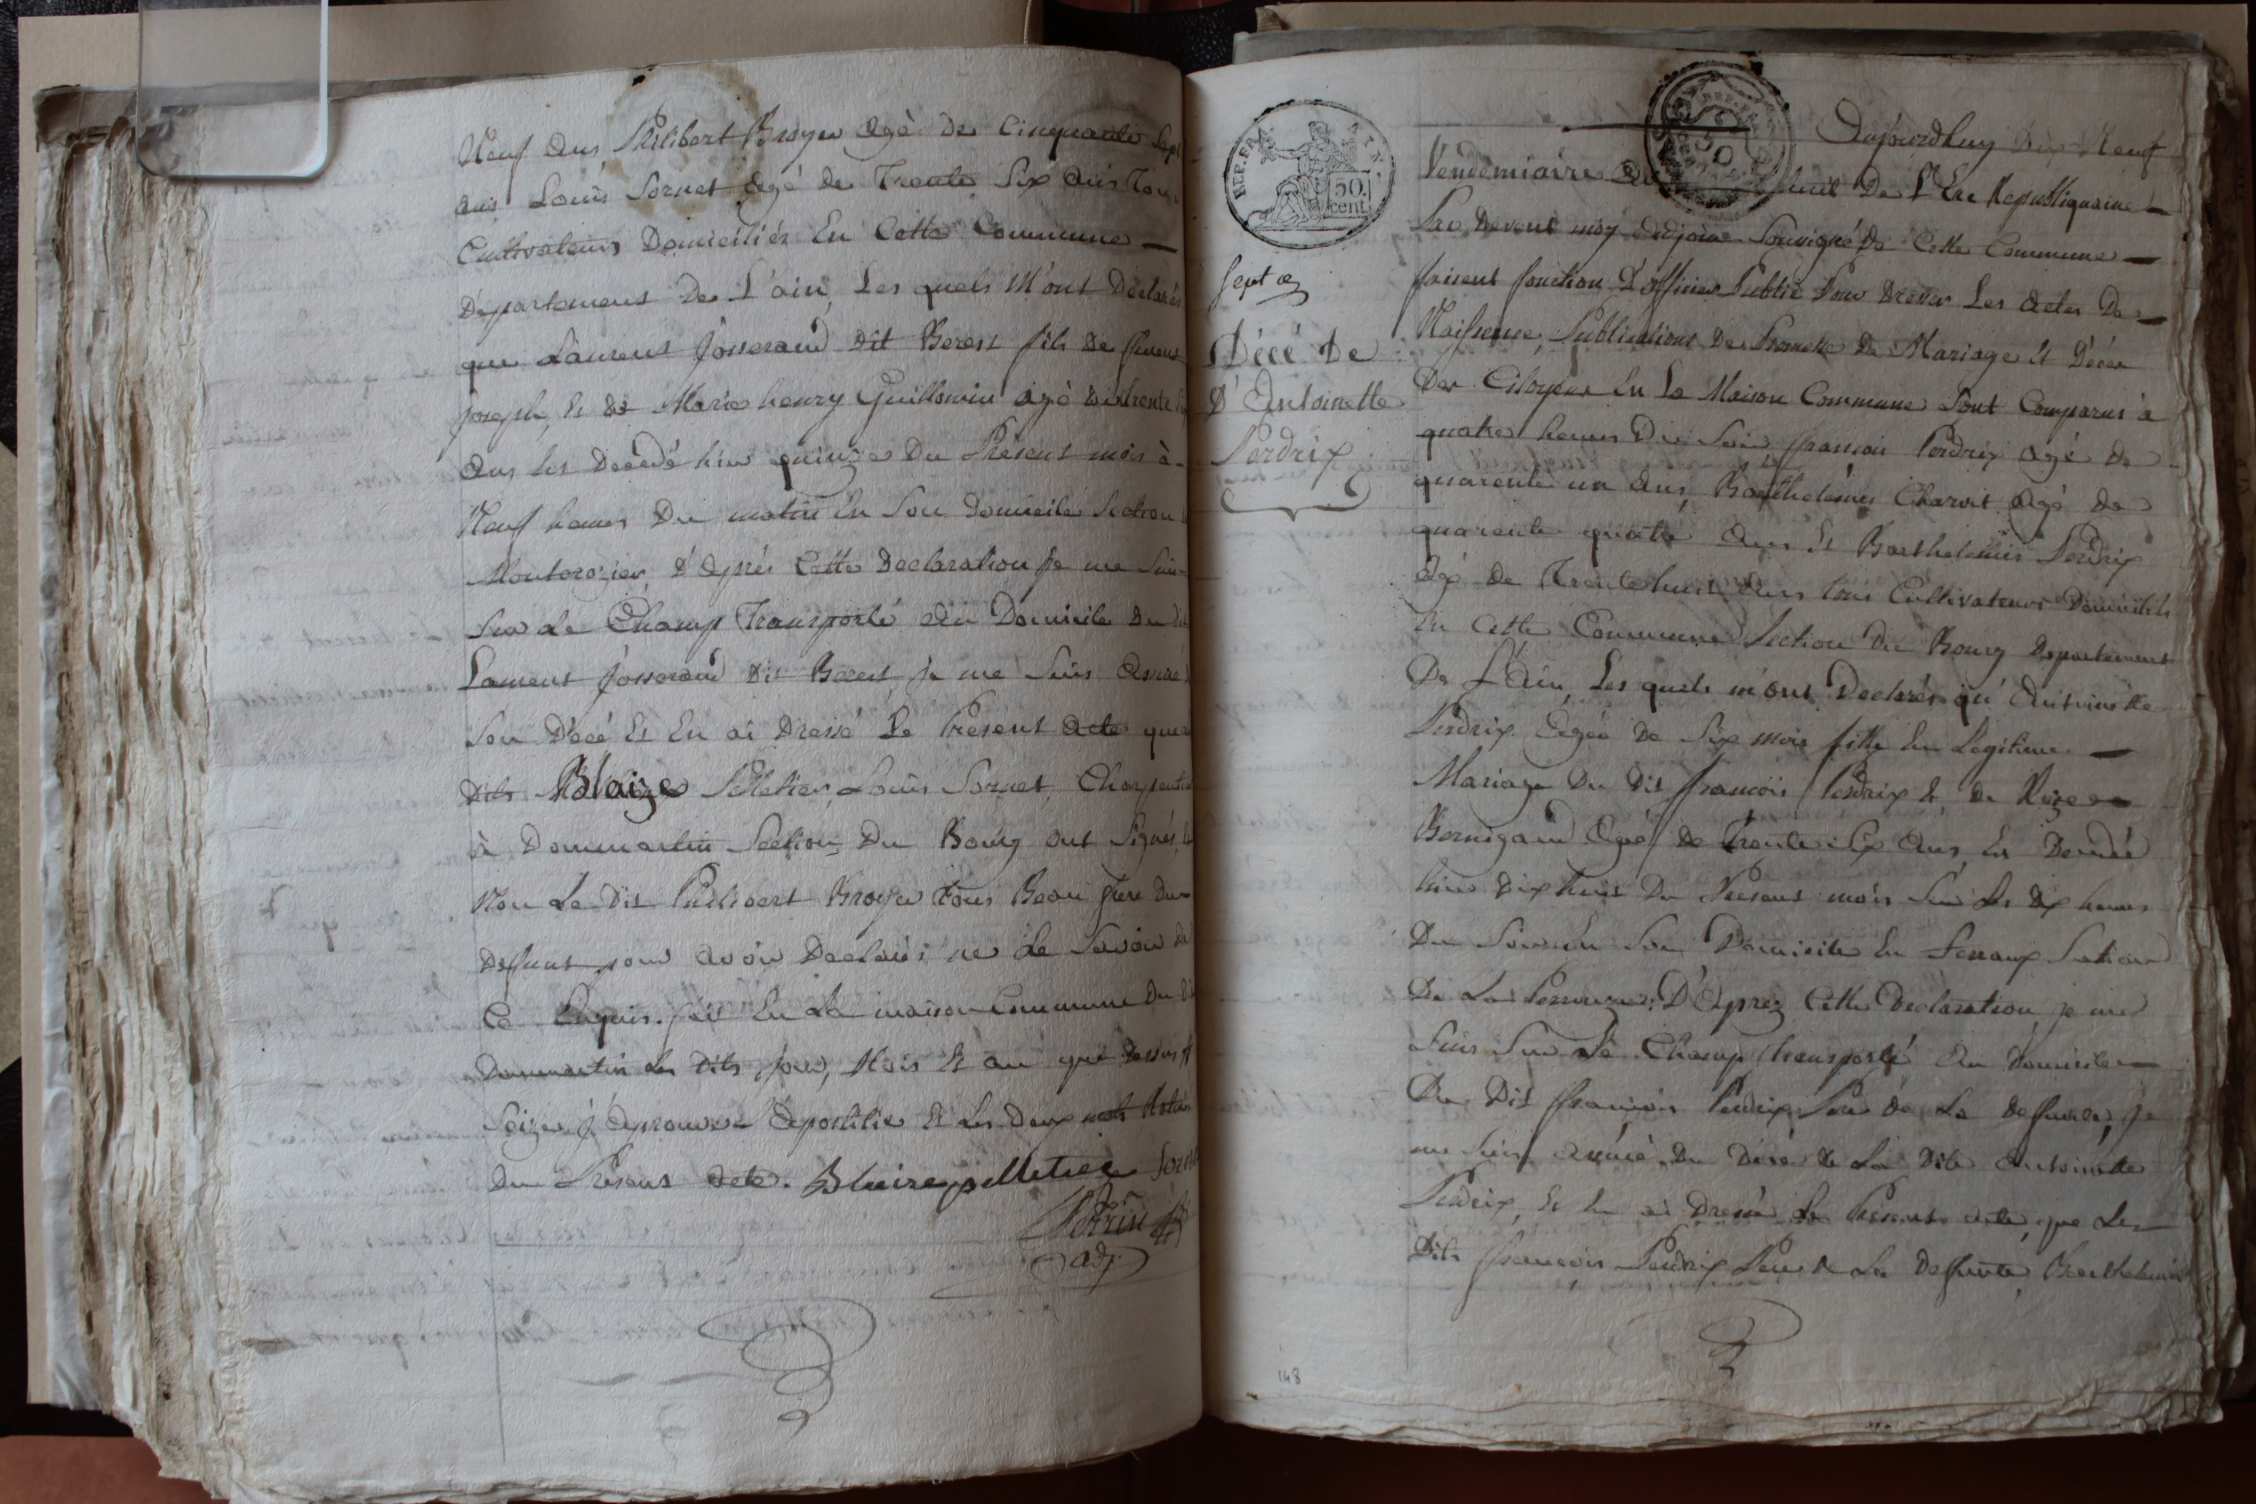 Neuf ans Philibert Broyer agé de Cinquante Sept
ans Louis Sornet agé de Trente Six ans Tous
Cultivateurs Domiciliés En Cette Commune
Département De L'ain, Les quels M'ont Déclarés
que Laurent Josserand dit Berest fils de
joseph, Et de Marie henry Guillomin agé de trente
ans Est Décédé hier quinze Du Présent mois à
Neuf heures Du matin En Son Domicile Section
D'Après Cette Déclaration Je me Suis
Sur Le Champ Transporté au Domicile Du dit
Laurent Josserand Dit Berest, je me Suis Assuré
Son Décé Et En ai Dressé Le Présent Acte que
Dits Blaize Pelletier, Louis Sornet, Charpentier
à Dommartin Section Du Bourg ont Signés,
Non Le Dit Philibert Broyer Beau frere Du
Deffunt pour avoir Declaré ne Le Savoir de
Ce Enquis. fait En La maison Commune Du dit
Dommartin Les Dits jour, Mois Et an que Dessus
Seize j'approuve Et Les Deux mots
Du Présent Acte. Blaize pelletier Sornet
Perrin
adj.
REP. FRA.
50.
cent.
Aujourdhuy Dix Neuf
Vendemiaire an huit De L'Ere Republiquaine
Par Devent moy adjoint Sousigné De Cette Commune
faisent fonction D'officier Public Pour Dresser Les Actes De
Naissence, Publications De Promesse De Mariage Et Décés
Des Citoyens En La Maison Commune Sont Comparus à
quatre heures Du Soir, francois Perdrix agé De
quarente un ans, Barthelémy Charvet agé De
quarente quatre ans Et Barthelémis Perdrix
agé De Trente huit ans tous Cultivateurs Domiciliés
En Cette Commune Section Du Bourg Departement
De L'Ain, Les quels m'ont Declarés qu'Antoinette
Perdrix Agée De Six mois fille En Légitime
Mariage Du Dit francois Perdrix Et De Rize
Bernigaud Agée De Trente Six Ans, Est Decedée
hier Dix huit Du Present mois Sur Les Dix heures
Du Soir En Son Domicile En Section
De La D'Aprez Cette Declaration, je me
Suis Sur Le Champ Transporté Au Domicile
Du Dit francois Perdrix Pere de La Deffunte, Je
me Suis Assuré Du Décé De La Dite Antoinette
Perdrix, Et En ai Dressé Le Present acte, que Les
Dits francois Perdrix Pere De La Deffunte, Barthelemis
Sept
Décé De
D'Antoinette
Perdrix
148